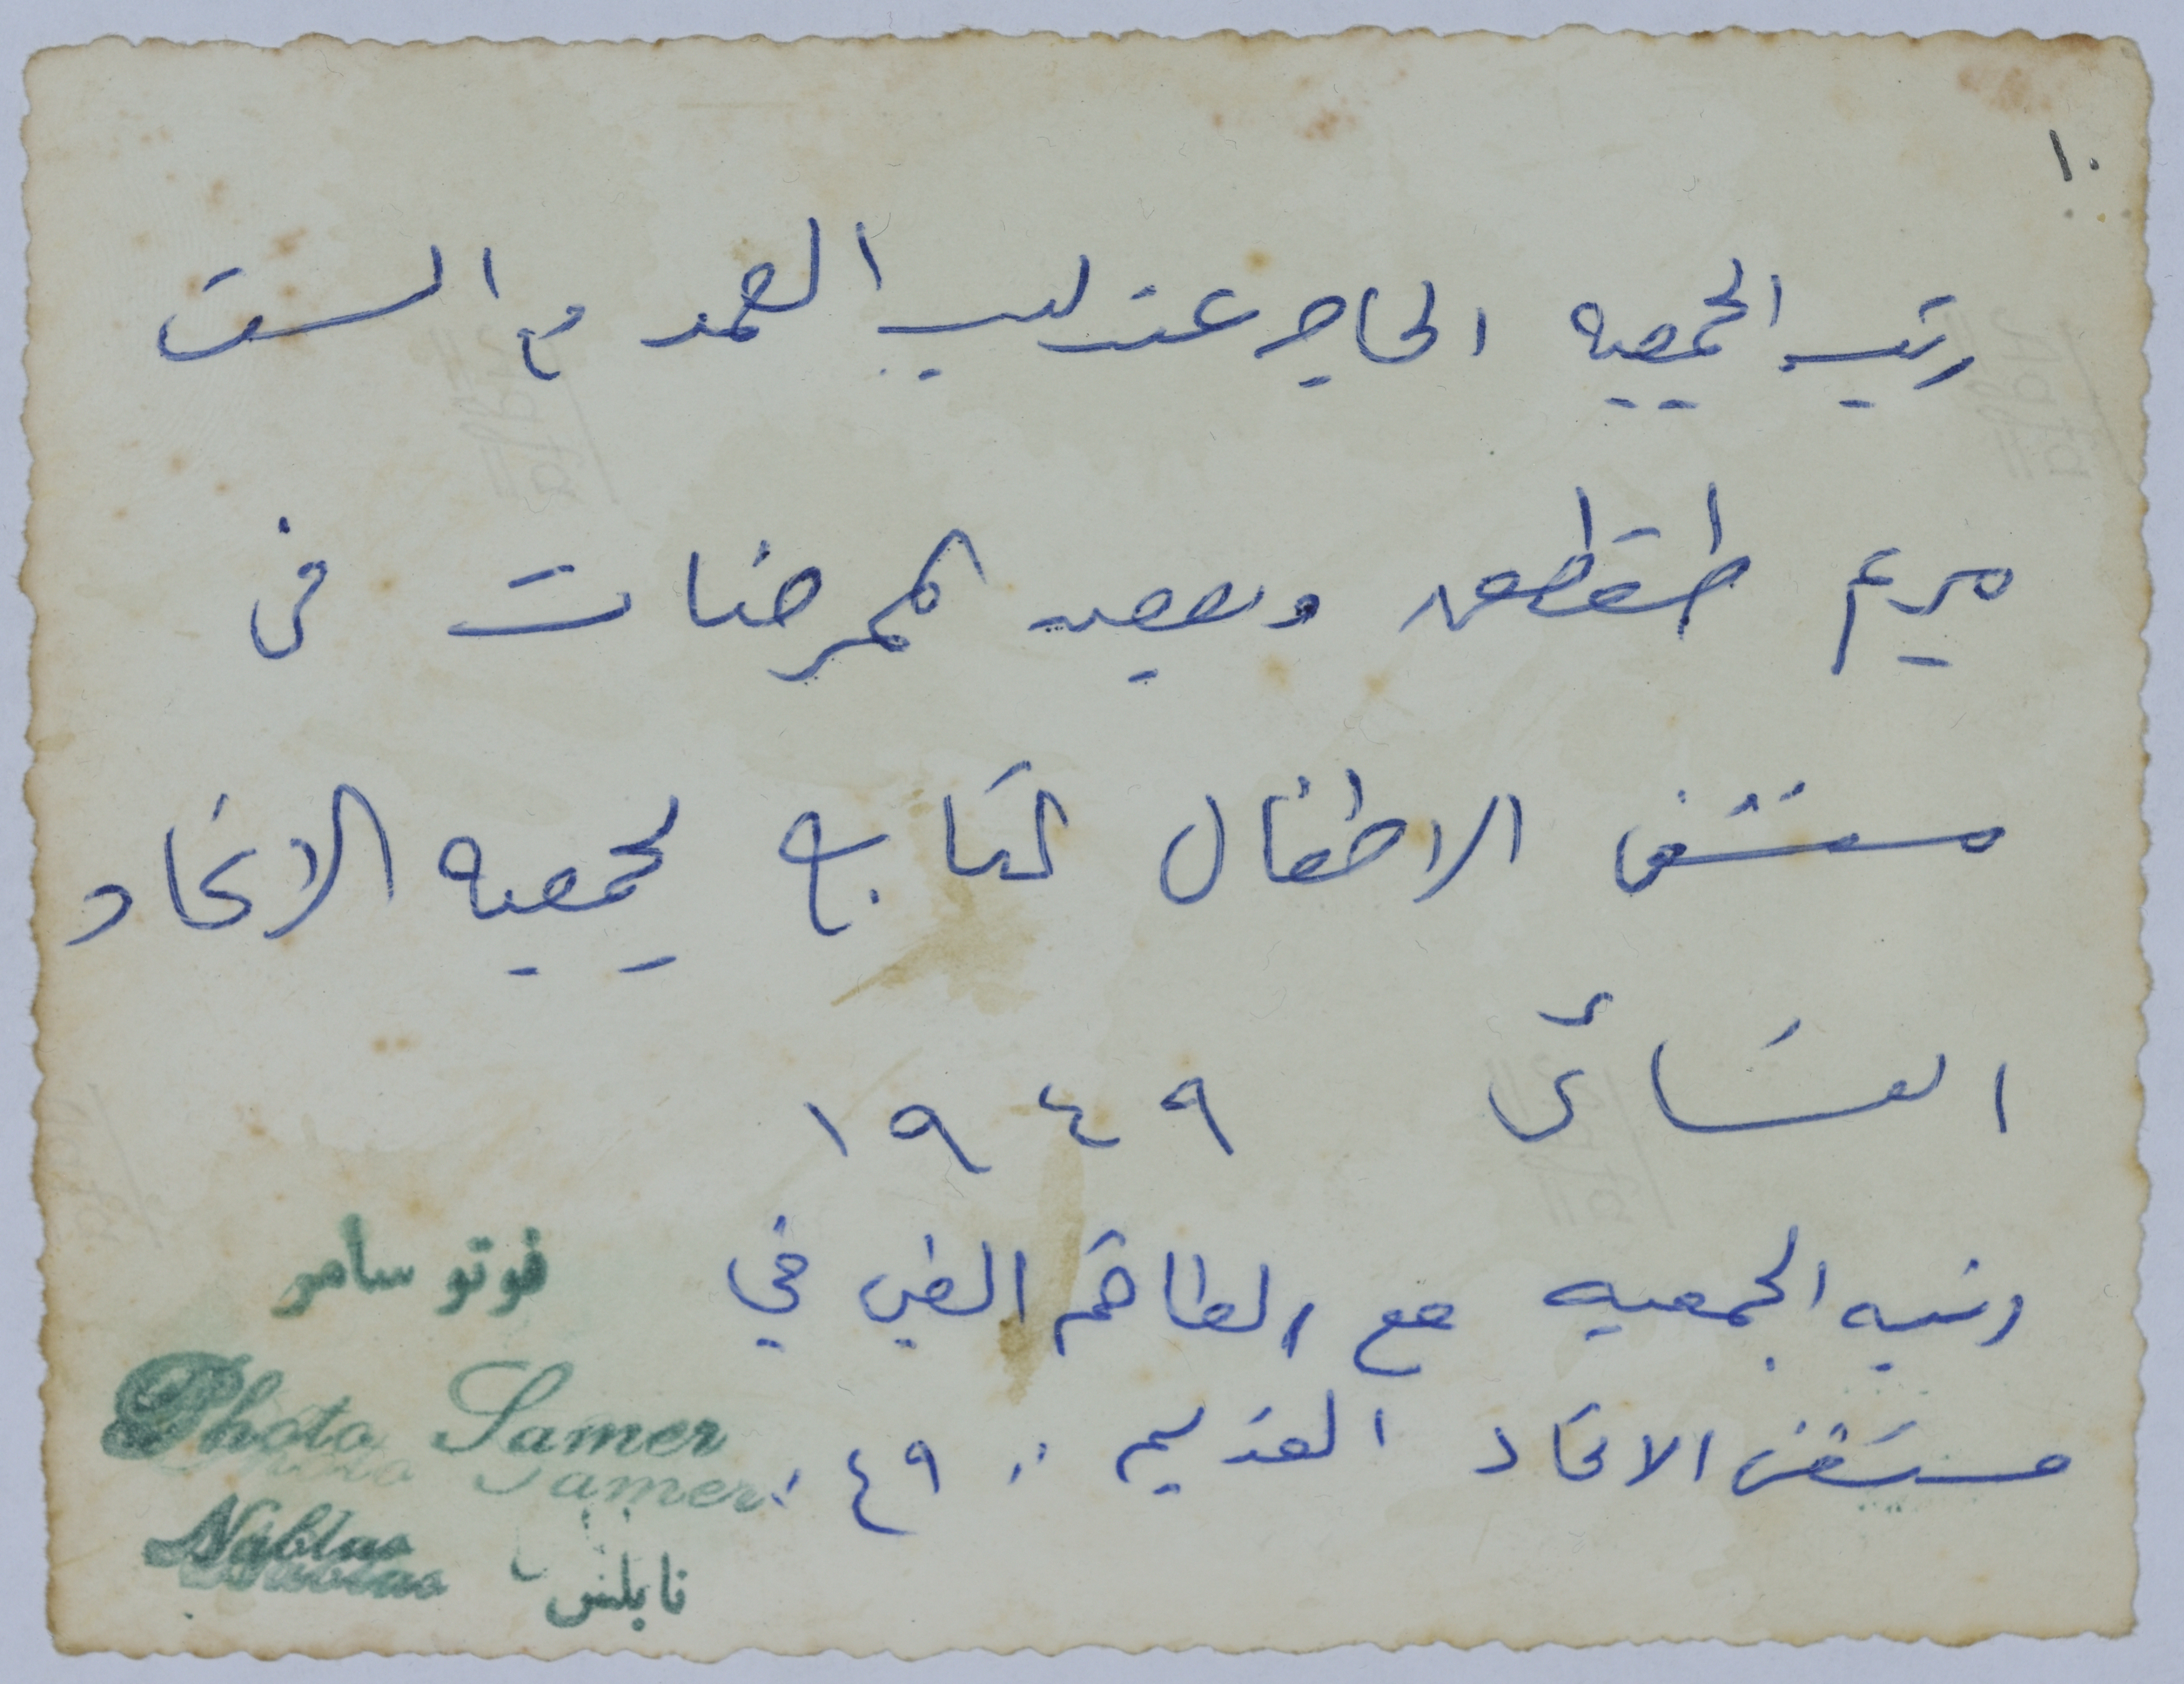 ١٠
رئيسه الجمعيه الحاجه عندليب العمد مع الست
مريم طقطق وبعض الممرضات في
مستشفى الاطفال التابع لجمعيه الاتحاد
النسائي ١٩٤٩
رئيسه الجمعيه مع الطاقم الطبي في
مستشفى الاتحاد القديم "٤٩"
فوتو سامر
Photo Samer
Nablus
نابلس